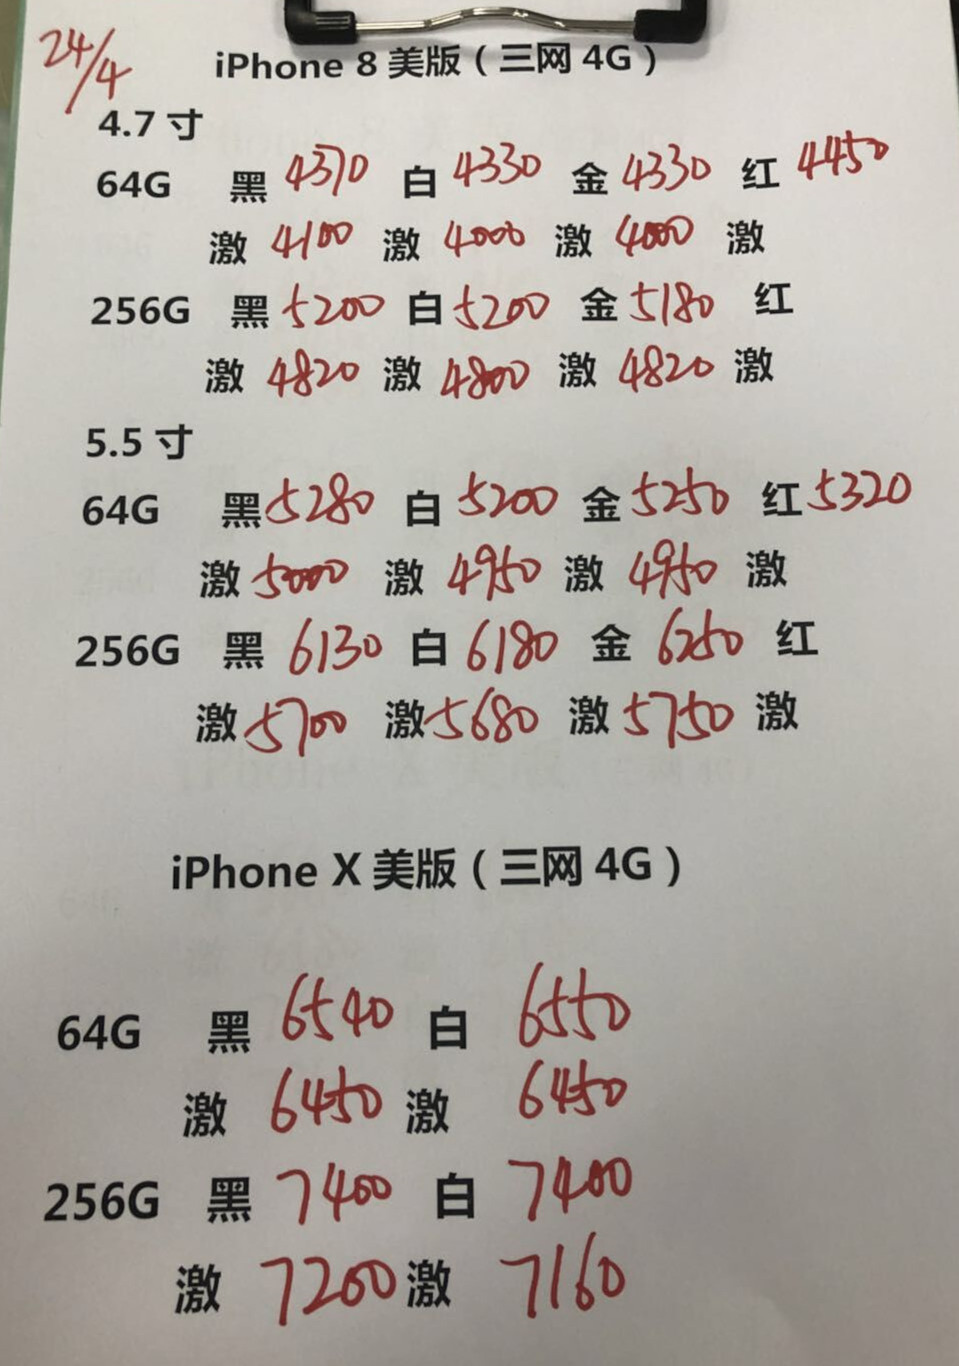 24/4
iPhone 8 美版（三网 4G）
4.7 寸
64G 黑 4370 白 4330 金 4330 红 4450
激 4100 激 4000 激 4000 激
256G 黑 5200 白 5200 金 5180 红
激 4820 激 4800 激 4820 激
5.5 寸
64G 黑 5280 白 5200 金 5250 红 5320
激 5000 激 4950 激 4950 激
256G 黑 6130 白 6180 金 6250 红
激 5700 激 5680 激 5750 激
iPhone X 美版（三网 4G）
64G 黑 6540 白 6550
激 6450 激 6450
256G 黑 7400 白 7400
激 7200 激 7160